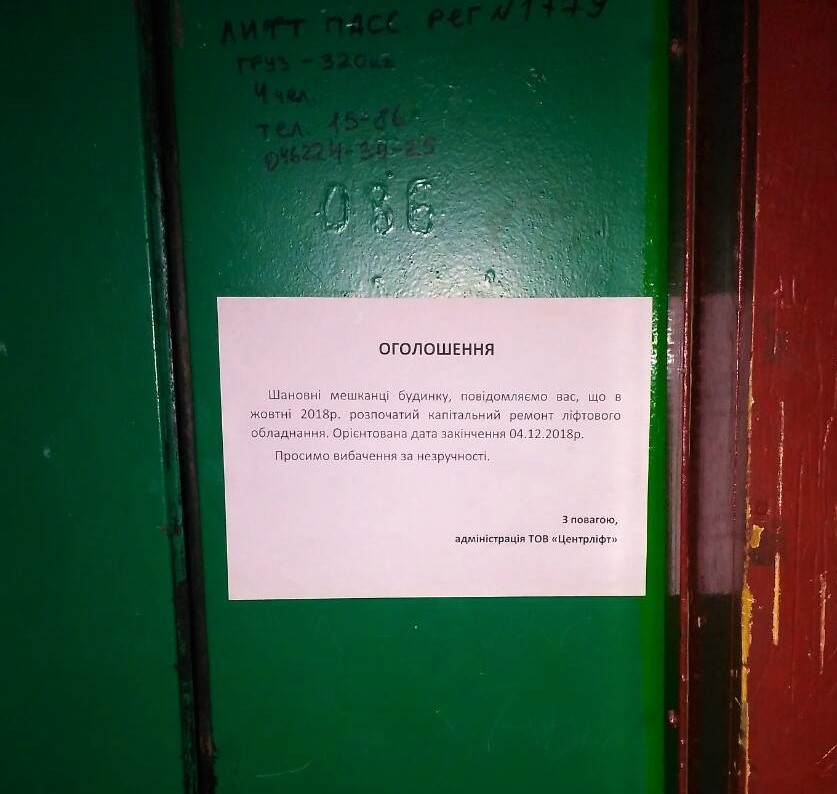 ЛИФТ ПАСС. РЕГ N 1779
ГРУЗ - 320кг
4 чел.
тел. 15-86
086
ОГОЛОШЕННЯ
Шановні мешканці будинку, повідомляємо вас, що в
жовтні 2018р. розпочатий капітальний ремонт ліфтового
обладнання. Орієнтована дата закінчення 04.12.2018р.
Просимо вибачення за незручності.
З повагою,
адміністрація ТОВ «Центрліфт»